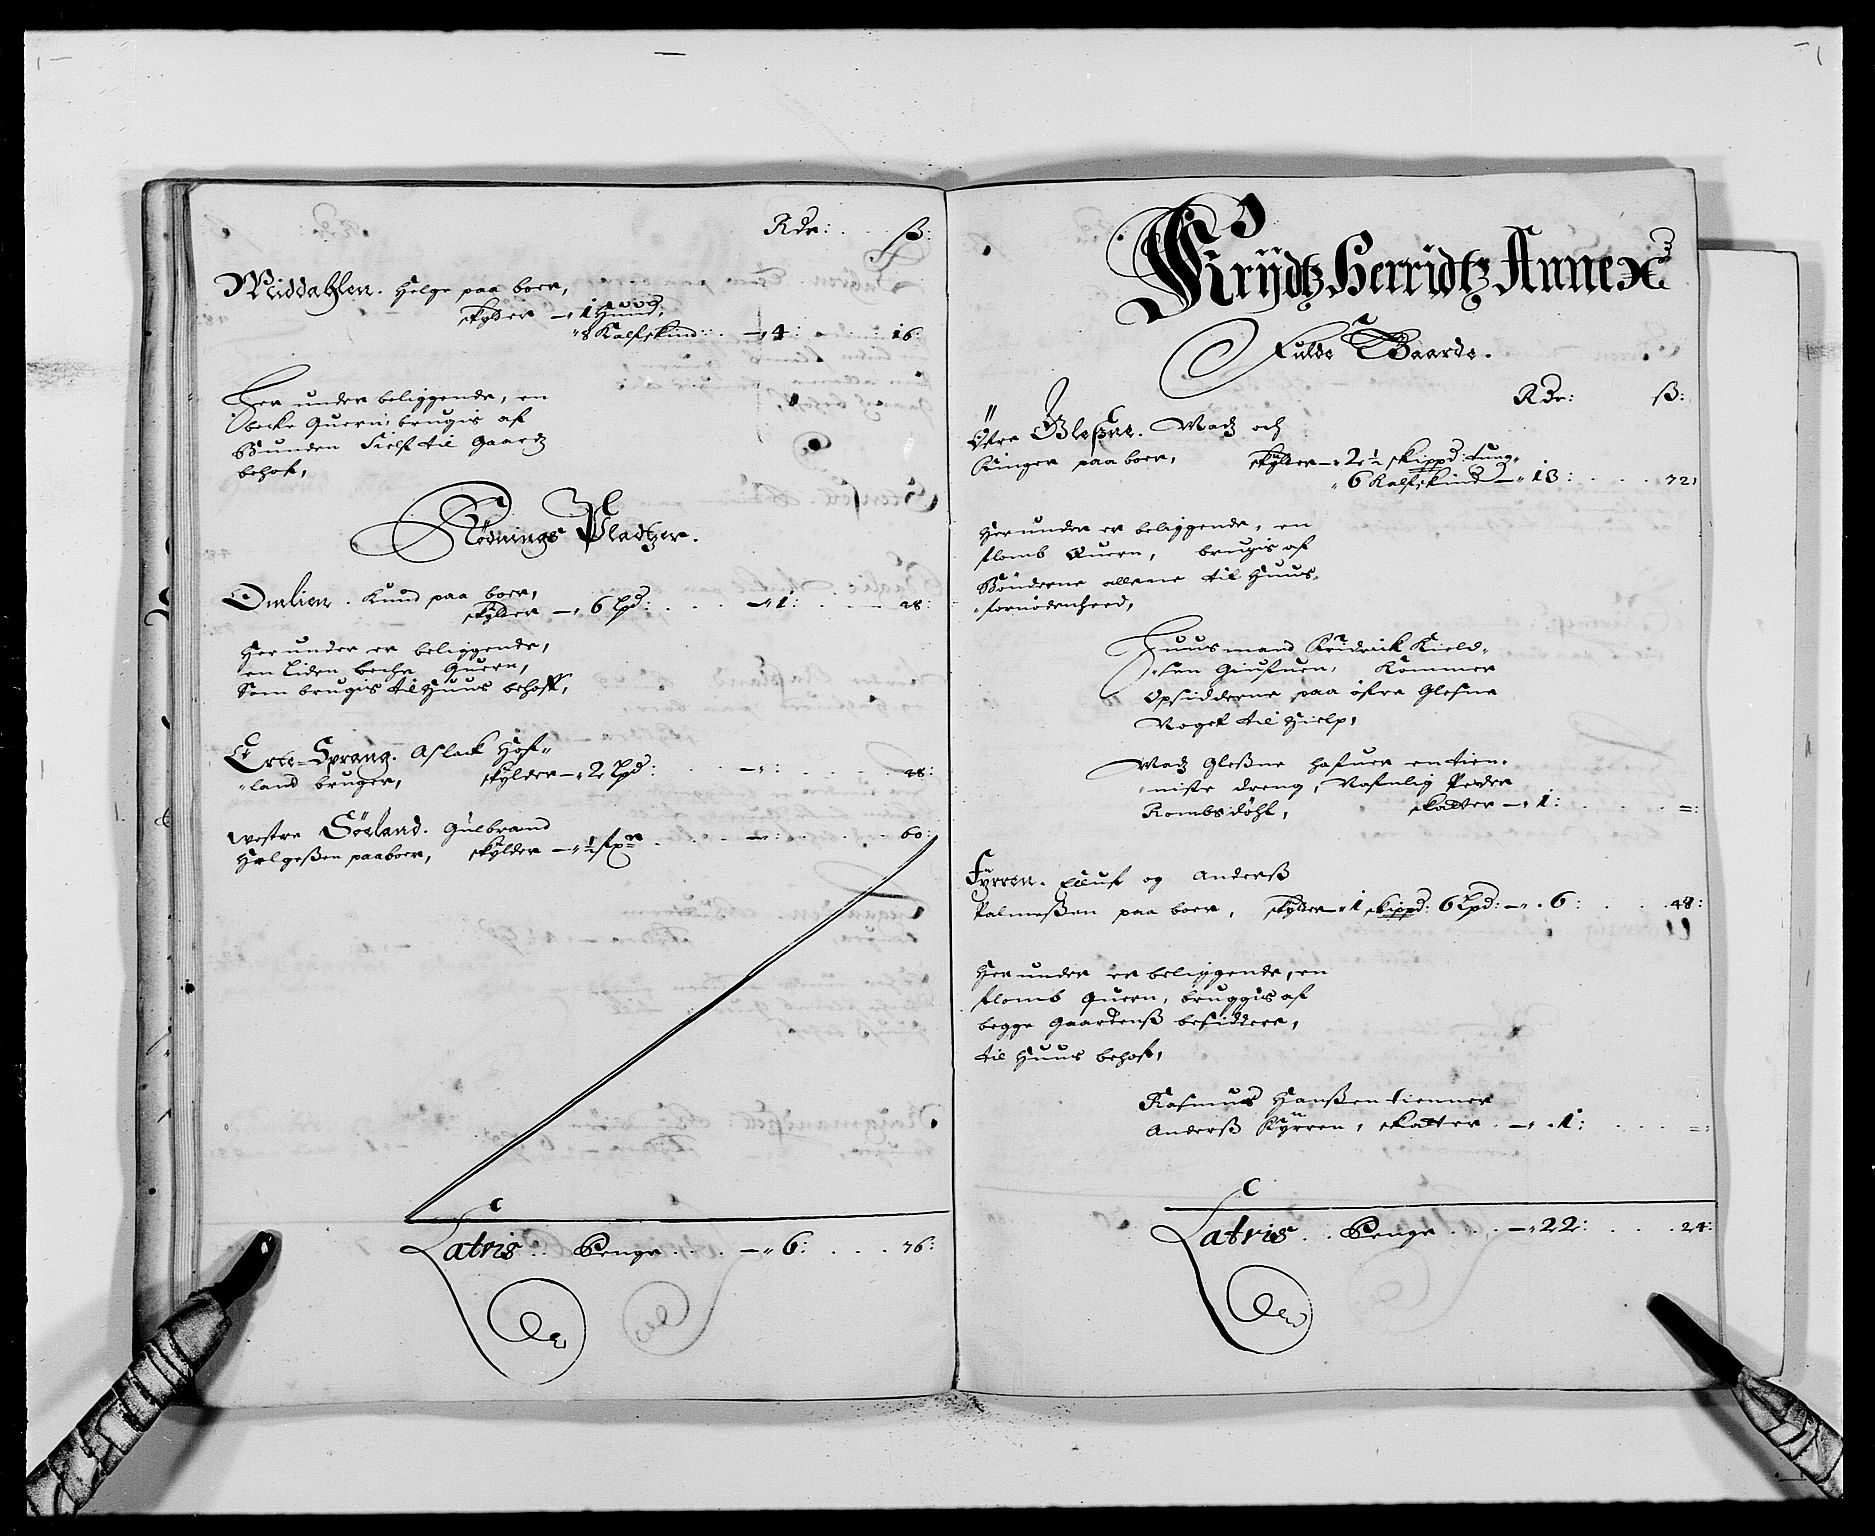 Rdr: ß:
Middahlen. Helge paa boer,
skylder — 1 Hund,
8 Kalfskind: — 4: 16:
Her under beliggende, en
becke Quern, brugis af
Bunden Sielf til Gaardz
behof,
Rødnings Pladtzer.
Omlien. Knud paa boer,
skylder — 6 lpd: — 1: 28:
Her under er beliggende,
en liden becke Quern,
Som brugis til Huus behoff,
Erte-Sprang. Aslack Hof-
land bruger, skylder — 2 lpd: — : 48:
Westre Søeland. Gulbrand
Helgeßen paaboer, skylder — ½ fxr — : 60:
Latris . . Penge . . . — 6: . . . 76:
Krydtz Herridtz Annex
Fulde Gaarde.
Rdr: ß:
Øfre Gleßne. Madz och
Ringer paa boer, skylder — 2½ skippd: tung,
6 Kalfskind — 13: 72:
Her under er beliggende, en
flomb Quern, brugis af
Bønderne allene til Huus-
fornødenheed,
Huusmand Fridrick Kield-
sen Giufuer, Kommer
Opsidderne paa øfre Glesne
Noget til Hielp,
Madz Gleßne hafuer en tien-
niste dreng, Nafnlig Peder
Rombsdöhl, skatter — 1: =:
Fyrren. Elluf og Anderß
Palmeßen paa boer, skylder — 1 skippd: 6 lpd: — 6: 48:
Her under er beliggende, en
flomb Quern, bruggis af
begge Gaardenß besiddere,
til Huus behof,
Rasmus Hanßen tienner
Anderß Fyrren, skatter — 1: =:
Latris . . Penge . . . — 22: . . . 24: